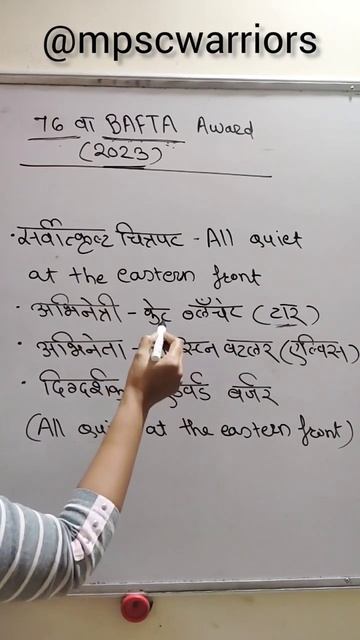 @mpscwarriors
76 वा BAFTA Award
(2023)
• सर्वोत्कृष्ट चित्रपट - All quiet
at the eastern front
• अभिनेत्री - केट ब्लँचेट (टार)
• अभिनेता - स्टिन बटलर (एल्विस)
• दिग्दर्शक बर्जर
(All quiet at the eastern front)